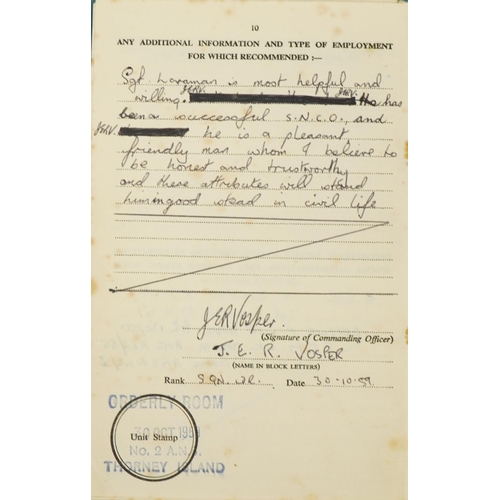 10
ANY ADDITIONAL INFORMATION AND TYPE OF EMPLOYMENT
FOR WHICH RECOMMENDED :—
Sgt Laraman is most helpful and
JERV. JERV.
willing. He has
been a successful S.N.C.O., and
JERV. he is a pleasant
friendly man whom I believe to
be honest and trustworthy
and these attributes will stand
him in good stead in civil life
JERVosper.
(Signature of Commanding Officer)
J. E. R. VOSPER
(NAME IN BLOCK LETTERS)
Rank SQN. LDR. Date 30.10.59
ORDERLY ROOM
30 OCT 1959
Unit Stamp
No. 2 A.N.S.
THORNEY ISLAND